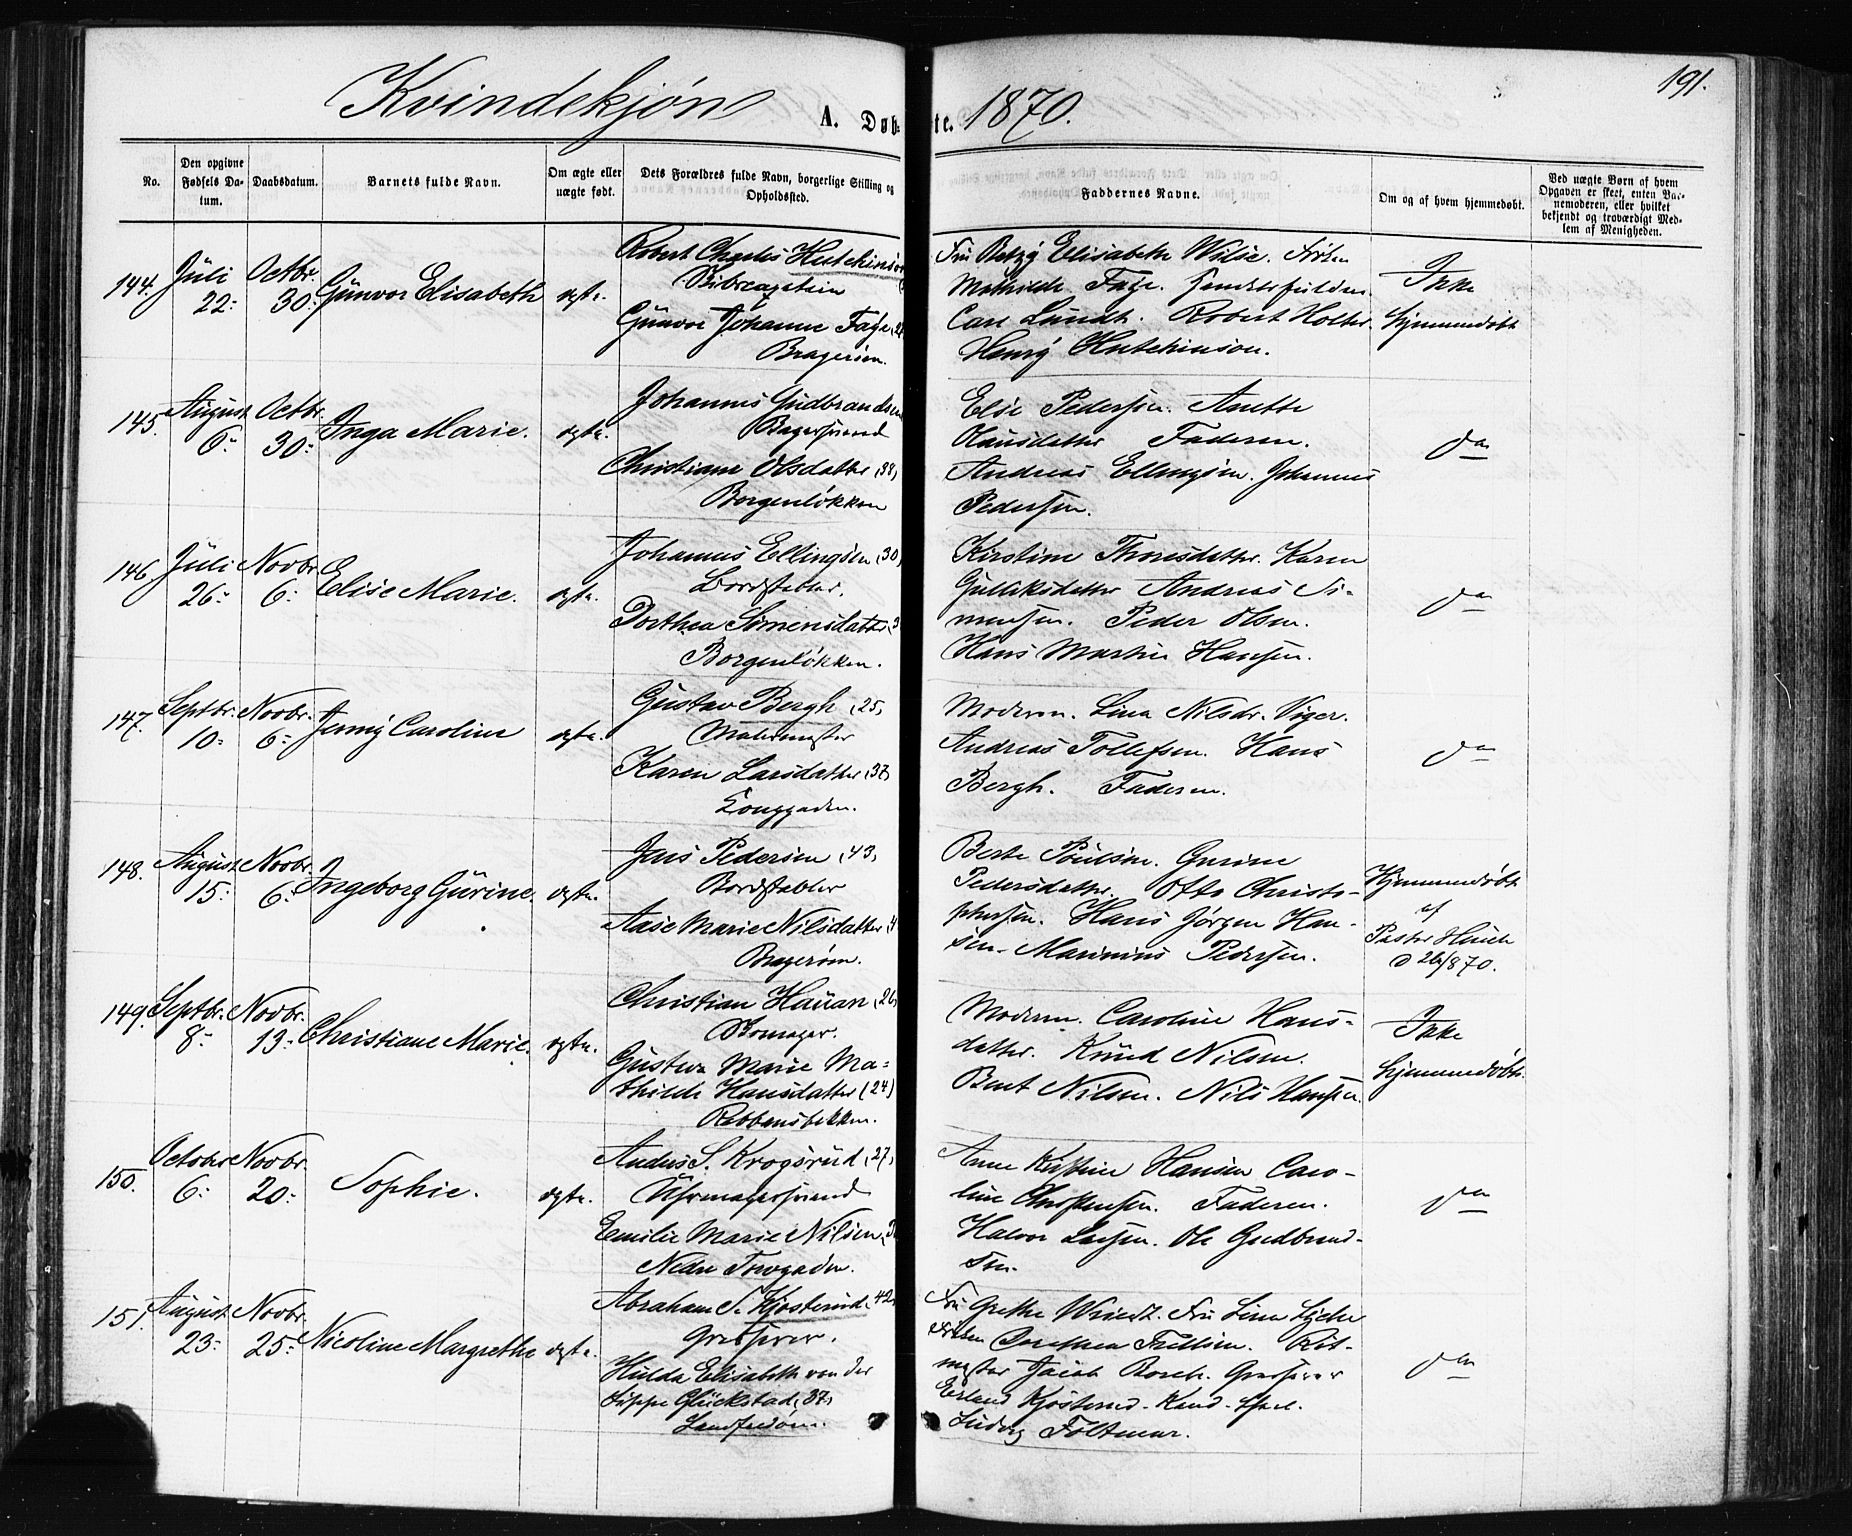 Kvindekjøn A. Døbte. 1870. 191.
No.
Den opgivne Fødsels Datum.
Daabsdatum.
Barnets fulde Navn.
Om ægte eller uægte født.
Dets Forældres fulde Navn, borgerlige Stilling og Opholdssted.
Faddernes Navne.
Om og af hvem hjemmedøbt.
Ved uægte Børn af hvem Opgaven er skeet, enten Barnemoderen, eller hvilket bekjendt og troværdigt Medlem af Menigheden.
144. Juli 22: Octbr. 30: Gunvor Elisabeth ægte.
Robert Charles Hutchinson
Gunvor Johanne Faye
Bragerøen.
Fru Betzy Elisabeth Wilse. Frøken
Mathilde Faye.
Carl Lundt. Robert Holter.
Henry Hutchinson.
Ikke
hjemmedøbt
145. August 6: Octbr. 30: Inga Marie. ægte.
Johannes Gudbrandsen
Bagersvend
Christiane Olsdatter (38)
Borgenløkken
Else Pedersen. Anette
Olausdatter Faderen.
Andreas Ellingsen. Johannes
Pedersen.
do
146 Juli 26: Novbr. 6: Elise Marie. ægte.
Johannes Ellingsen (30)
Bordstabler.
Dorthea Simensdatter
Borgenløkken.
Kirstine Thoresdatter. Karen
Gulliksdatter Andreas Si-
mensen. Peder Olsen.
Hans Martin Hansen.
do
147. Septbr. 10: Novbr. 6: Jenny Caroline ægte.
Gustav Bergh (25)
Malermester
Karen Larsdatter (37)
Konggaden.
Moderen. Lina Nilsdr. Viger.
Andreas Tollefsen. Hans
Bergh. Faderen.
do
148. August 15: Novbr. 6: Ingeborg Gurine. ægte.
Jens Pedersen (43)
Bordstabler
Aase Marie Nilsdatter
Bragerøen.
Berte Poulsen. Gurine
Pedersdatter. Otto Christo-
phersen. Hans Jørgen Han-
sen. Marinius Pedersen.
Hjemmedøbt
af
Pastor
870.
149. Septbr. 8: Novbr. 13: Christiane Marie. ægte.
Christian Hauan (26)
Skomager.
Gustava Marie Ma-
thilde Hansdatter (24)
Moderen. Caroline Hans-
datter. Knud Nilsen.
Bent Nilsen. Nils Hansen.
Ikke
hjemmedøbt.
150. October 6: Novbr. 20: Sophie. ægte.
Anders S. Krogsrud (27)
Uhrmagersvend
Emilie Marie Nilsen
Nedre Torvgaden.
Anne Kirstine Hansen Caro-
line Christensen. Faderen.
Halvor Larsen. Ole Gudbrand-
sen.
do
151. August 23: Novbr. 25: Nicoline Margrethe ægte.
Abraham S. Kjøsterud (42)
Grosserer.
Hulda Elisabeth von der
Lippe Glückstad (37)
Fru Grethe Wriedt. Fru Lina Lyche
Frøken Dorothea Frellsen. Rit-
mester Jacob Borch. Grosserer
Erland Kjøsterud.
Ludvig Foltmar.
do